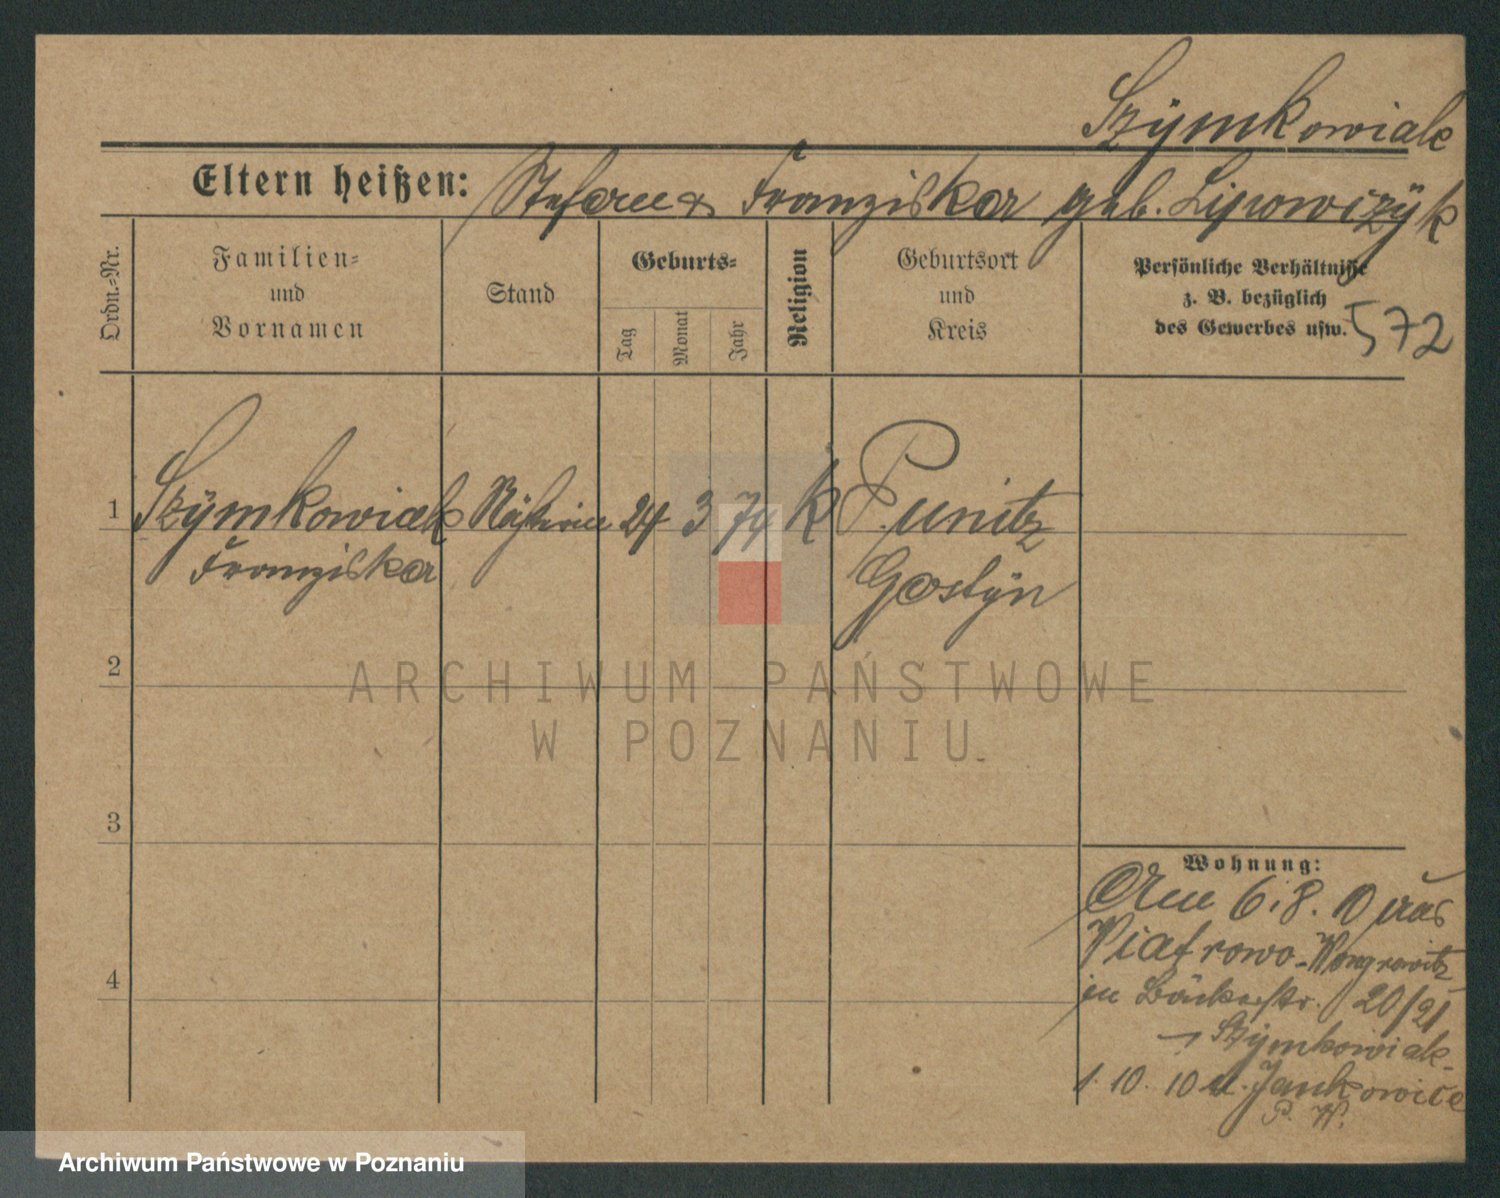 Szymkowiak
Eltern heißen: Stefan & Franziska geb. Lipowizyk
Ordn.-Nr.
Familien-
und
Vornamen
Stand
Geburts-
Tag
Monat
Jahr
Religion
Geburtsort
und
Kreis
Persönliche Verhältnisse
z. B. bezüglich
des Gewerbes usw.
572
1 Szymkowiak Näherin 24 3 79 k Punitz
Franziska Gostyn
2
ARCHIWUM PAŃSTWOWE
W POZNANIU
3
Wohnung:
Am 6.8.10 aus
Piatrowo-Wongrowitz
in Bäckerstr. 20/21
Szymkowiak
1.10.10 n. Jankowice
P. W.
4
Archiwum Państwowe w Poznaniu